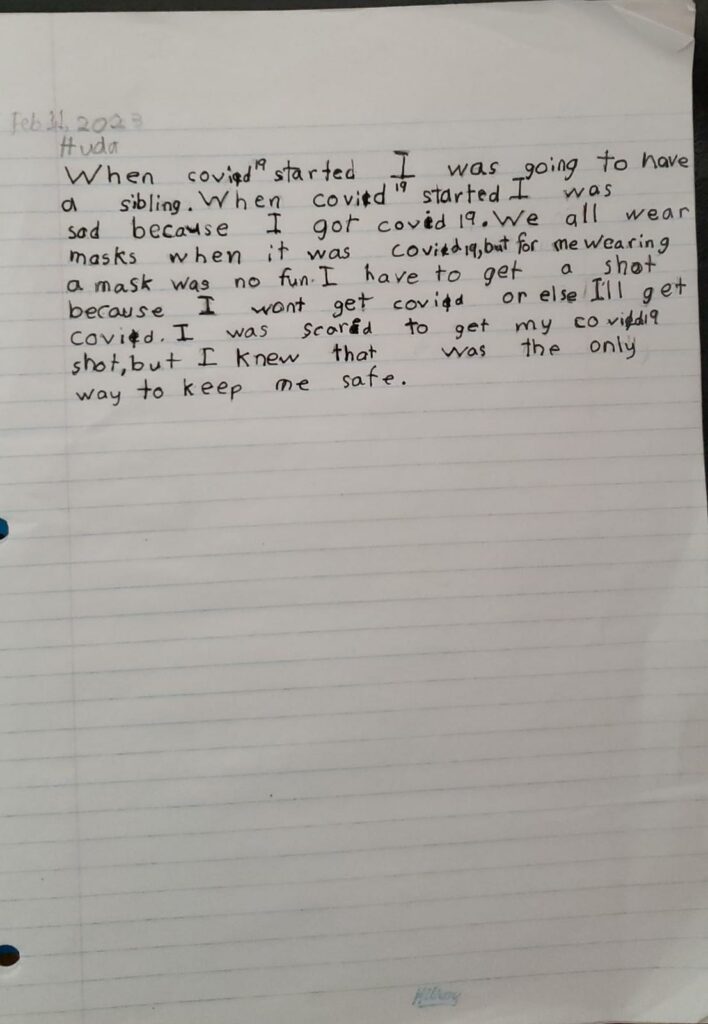 Feb 2023
Huda
When covid 19 started I was going to have
a sibling. When covid 19 started I was
sad because I got covid 19. We all wear
masks when it was covid 19, but for me wearing
a mask was no fun. I have to get a shot
because I wont get covid or else I'll get
covid. I was scared to get my covid 19
shot, but I knew that was the only
way to keep me safe.